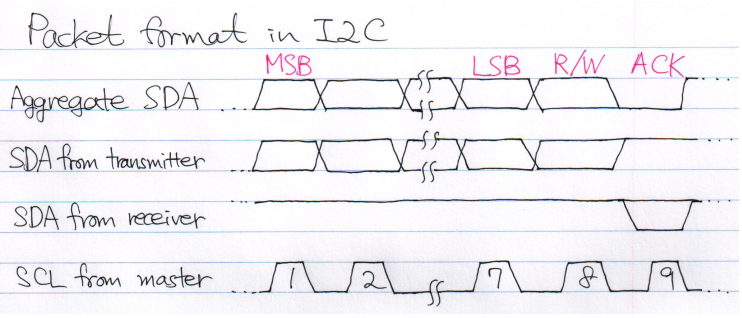 Packet format in I2C
MSB LSB R/W ACK
Aggregate SDA
SDA from transmitter
SDA from receiver
SCL from master 1 2 7 8 9